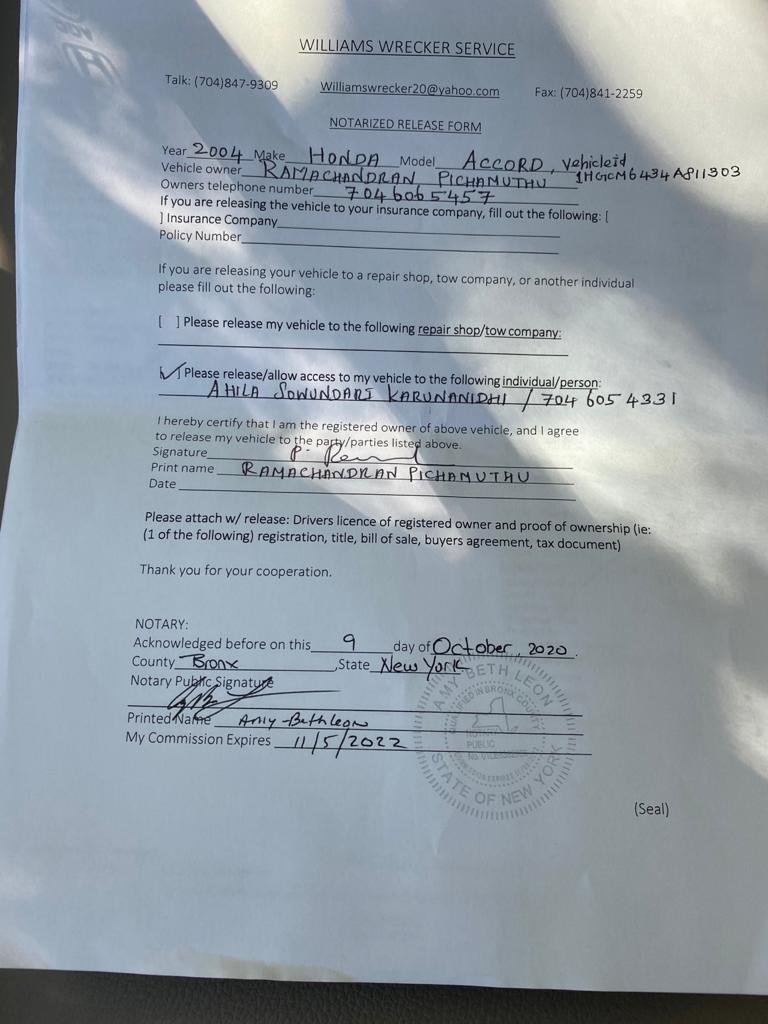 WILLIAMS WRECKER SERVICE
Talk: (704)847-9309 Williamswrecker20@yahoo.com Fax: (704)841-2259
NOTARIZED RELEASE FORM
Year 2004 Make HONDA Model ACCORD, vehicleid
Vehicle owner RAMACHANDRAN PICHAMUTHU 1HGCM6434A811303
Owners telephone number 704 606 5457
If you are releasing the vehicle to your insurance company, fill out the following: [
] Insurance Company
Policy Number
If you are releasing your vehicle to a repair shop, tow company, or another individual
please fill out the following:
[ ] Please release my vehicle to the following repair shop/tow company:
[✓] Please release/allow access to my vehicle to the following individual/person:
AHILA SOWUNDARI KARUNANIDHI / 704 605 4331
I hereby certify that I am the registered owner of above vehicle, and I agree
to release my vehicle to the party/parties listed above.
Signature P.
Print name RAMACHANDRAN PICHAMUTHU
Date
Please attach w/ release: Drivers licence of registered owner and proof of ownership (ie:
(1 of the following) registration, title, bill of sale, buyers agreement, tax document)
Thank you for your cooperation.
NOTARY:
Acknowledged before on this 9 day of October, 2020.
County Bronx, State New York
Notary Public Signature
Printed Name Amy-Beth Leon
My Commission Expires 11/5/2022
AMY BETH LEON
QUALIFIED IN BRONX COUNTY
PUBLIC
STATE OF NEW YORK
(Seal)